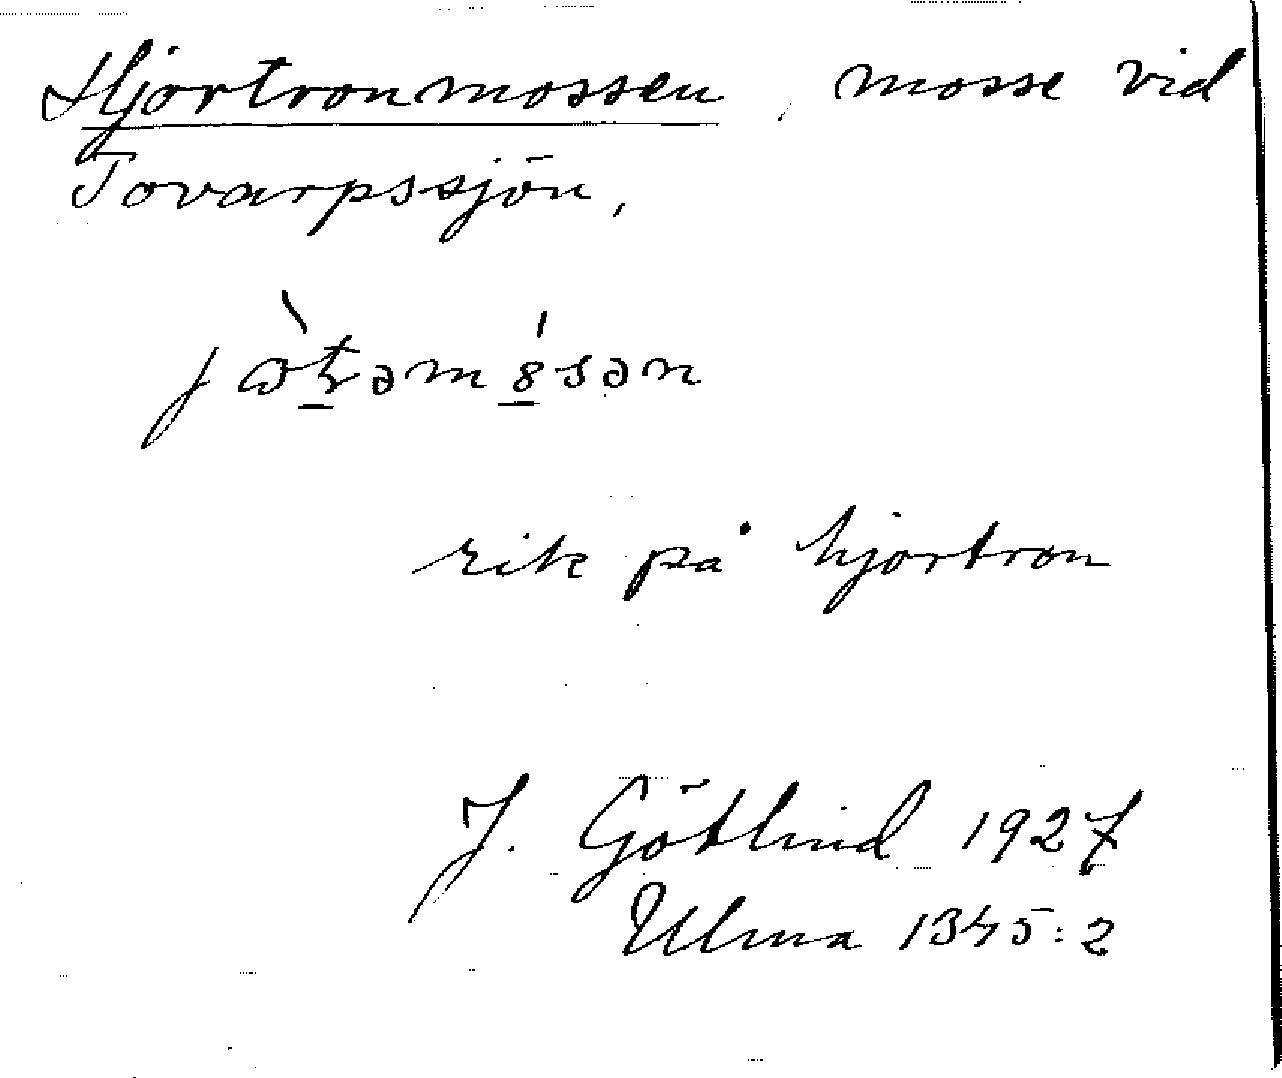 Hjortronmossen, mosse vid
Tovarpssjön,
rik på hjortron
J. Götlind 1927
Ulma 1345:2